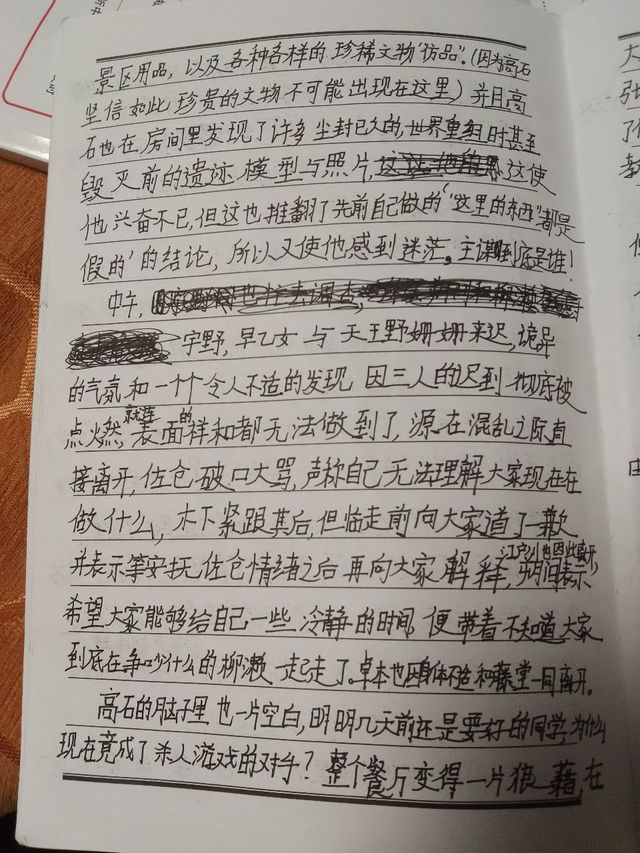 景区用品，以及各种各样的珍稀文物"仿品"。(因为高石
坚信如此珍贵的文物不可能出现在这里) 并且高
石也在房间里发现了许多尘封已久的,世界重组时甚至
毁灭前的遗迹模型与照片,这使
他兴奋不已,但这也推翻了先前自己做的'"这里的东西"都是
假的'的结论，所以又使他感到迷茫。主谋到底是谁!
中午,
宇野,早乙女与天王野姗姗来迟,诡异
的气氛和一个个令人不适的发现因三人的迟到彻底被
点燃,就连表面的祥和都无法做到了,源在混乱之际直
接离开,佐仓破口大骂,声称自己无法理解大家现在在
做什么,木下紧跟其后,但临走前向大家道了一歉
并表示等安抚佐仓情绪之后再向大家解释,江户川也因此离开,朔间表示
希望大家能够给自己一些冷静的时间,便带着不知道大家
到底在争吵什么的柳濑一起走了。卓本也因身体不适和藤堂一同离开。
高石的脑子里也一片空白,明明几天前还是要好的同学,为什么
现在竟成了杀人游戏的对手? 整个餐厅变得一片狼藉,在